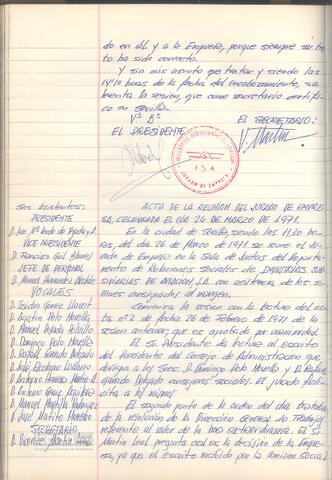 do en él y a la Empresa, porque siempre su tra
to ha sido correcto.
Y sin mas asunto que tratar y siendo las
14'10 horas de la fecha del encabezamiento, se le
vanta la sesion, que como secretario certifi
co en Sevilla.
Vº Bº
EL PRESIDENTE
EL SECRETARIO:
V. Martin
ISA
JURADO DE EMPRESA
Sres. Asistentes:
PRESIDENTE
VICE PRESIDENTE
D. Francisco Gil
JEFE DE PERSONAL
D. Manuel Hernandez
VOCALES
D. Isidro Gomez Lloret
D. Agustin Polo Morillo
D. Manuel
D. Domingo Polo Morillo
D. Rafael Grande Delgado
D. Jose
D. Antonio
D. Antonio
D. Manuel
D. Jose
SECRETARIO
D. Vicente Martin Leal
ACTA DE LA REUNION DEL JURADO DE EMPRE-
SA, CELEBRADA EL DIA 26 DE MARZO DE 1971.
En la ciudad de Sevilla, siendo las 11,30 ho-
ras, del dia 26 de Marzo de 1971 se reune el Jura
do de Empresa en la Sala de Juntas del Departa
mento de Relaciones Sociales de INDUSTRIAS SUB
SIDIARIAS DE AVIACION, S.A. con asistencia de los se
ñores consignados al margen.
Comienza la sesion con la lectura del acta
nº 2 de fecha 26 de Febrero de 1971 de la
sesion anterior, que es aprobada por unanimidad.
El Sr. Presidente da lectura al escrito
del Presidente del Consejo de Administracion que
designa a los Sres. D. Domingo Polo Morillo y D. Rafael
Grande Delgado consejeros sociales. El jurado feli
cita a los mismos.
El segundo punto de la orden del dia
de la Resolucion de la Direccion General de Trabajo
referente al valor de la hora extraordinaria. El Sr.
Martin Leal pregunta cual es la decision de la Empre
sa, ya que el escrito recibido por la Comision Social